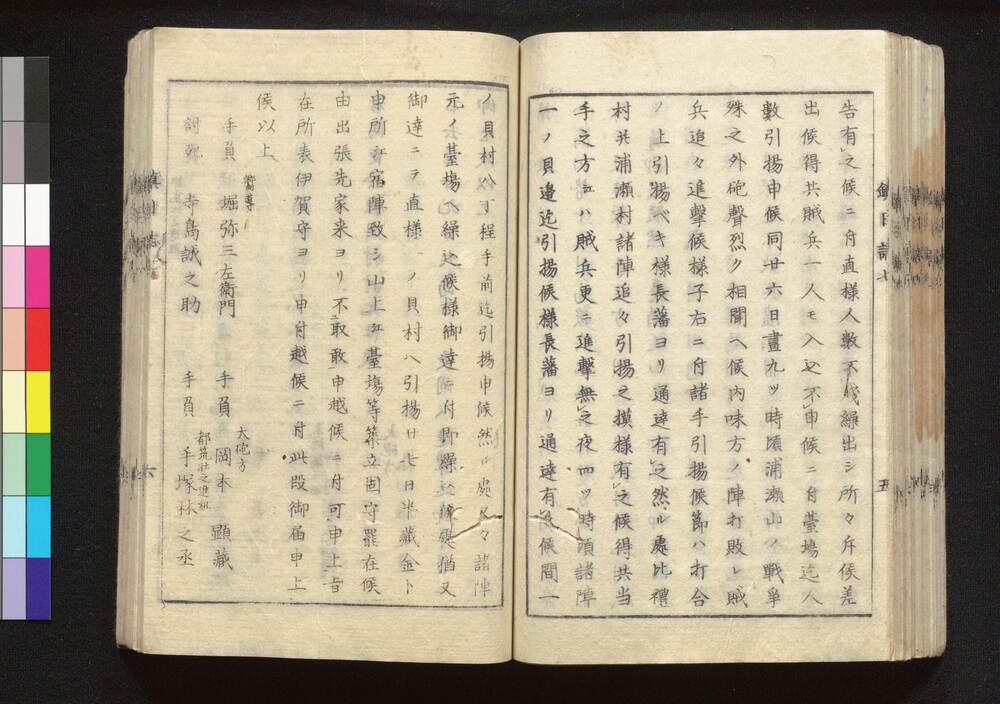 告有之候ニ付直様人數不殘繰出シ所々斥候差
出候得共賊兵一人モ入込不申候ニ付臺場迄人
數引揚申候同廿六日晝九ツ時頃浦瀬山ノ戰爭
殊之外砲聲烈ク相聞ヘ候内味方ノ陣打敗レ賊
兵追々進擊候樣子右ニ付諸手引揚候節ハ打合
ノ上引揚ベキ樣長藩ヨリ通達有之然ル處比禮
村并浦瀬村諸陣追々引揚之摸樣有之候得共當
手之方江ハ賊兵更ニ進擊無之夜四ツ時頃諸陣
一ノ貝邊迄引揚候樣長藩ヨリ通達有之候間一
ノ貝村八丁程手前迄引揚申候然ル處又々諸陣
元ノ臺場へ繰込候樣御達ニ付即繰込候處猶又
御達ニテ直樣一ノ貝村ヘ引揚廿七日半藏金ト
申所江宿陣致シ山上江臺場等築立固守罷在候
由出張先家来ヨリ不取敢申越候ニ付可申上旨
在所表伊賀守ヨリ申付越候ニ付此段御届申上
候以上
手負 嚮導 堀弥三左衛門 手負 大砲方 岡本顕藏
討死 寺島誠之助 手負 都筑壮之進組 手塚林之丞
五
六